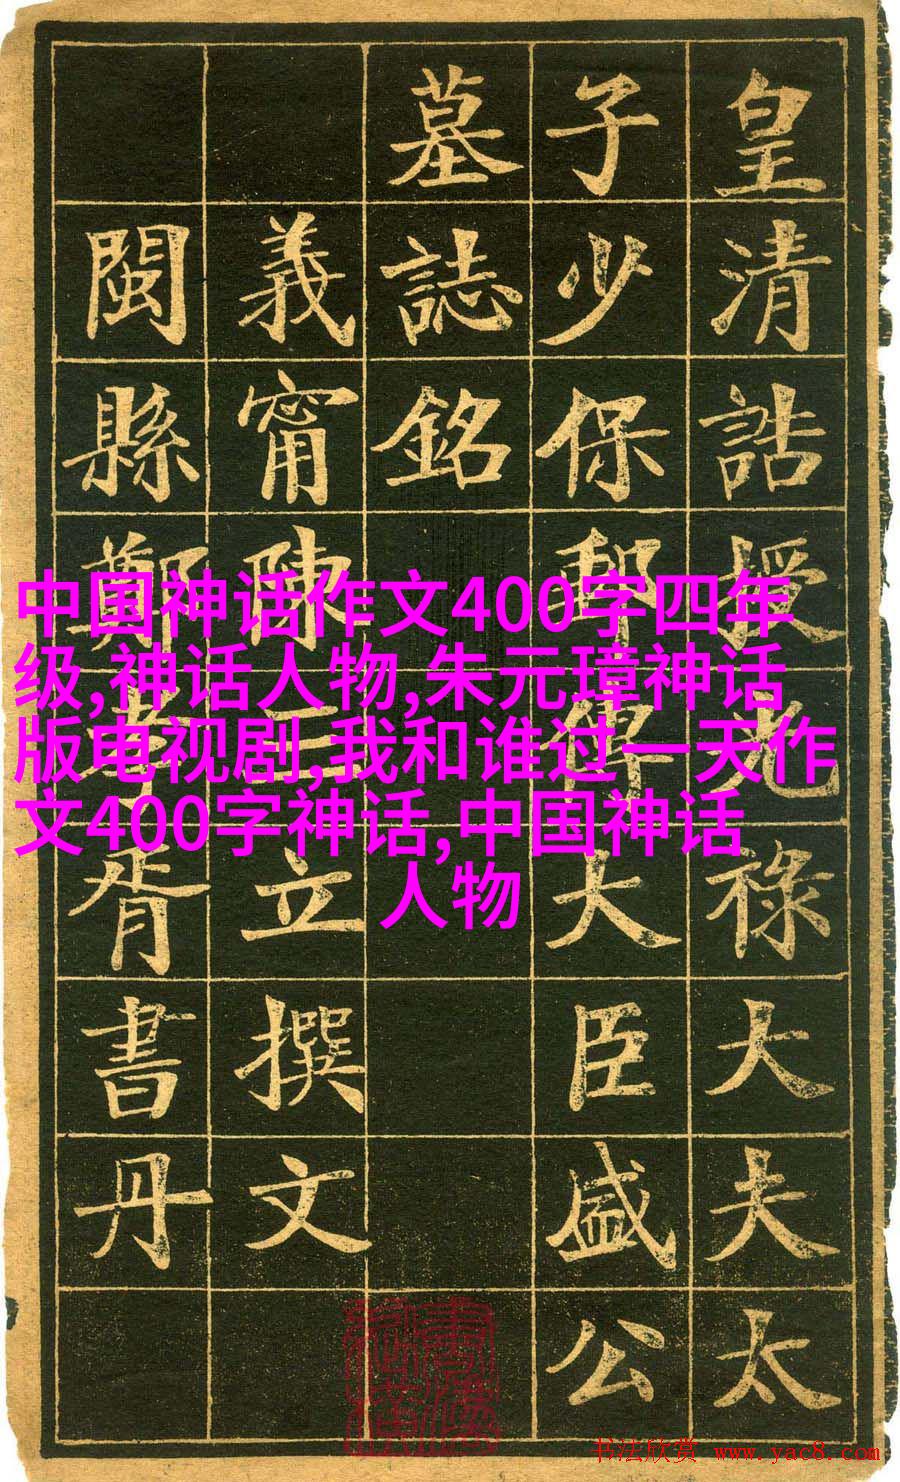 皇清誥授光祿大夫太
子少保郵傳大臣盛公
墓誌銘
義甯陳三立撰文
閩縣鄭孝胥書丹
中国神话作文400字四年
级,神话人物,朱元璋神话
版电视剧,我和谁过一天作
文400字神话,中国神话
人物
书法欣赏 www.yac8.com